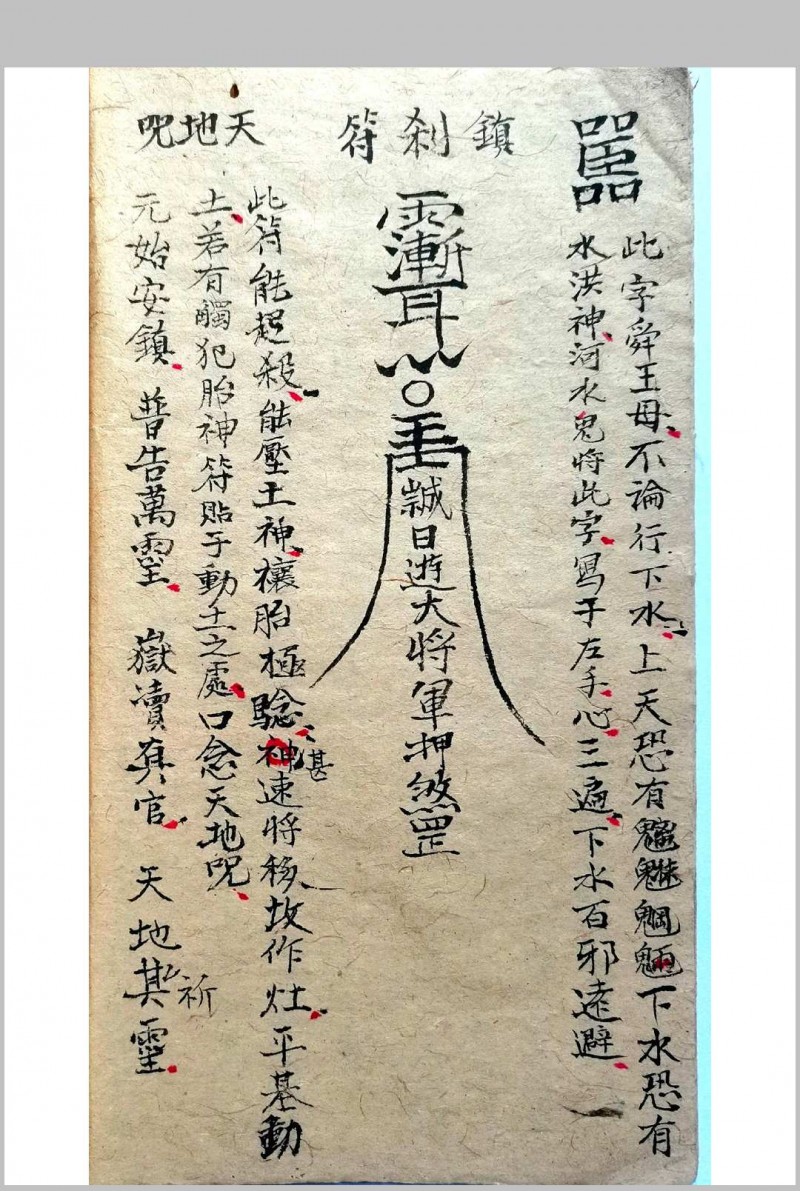 嚚
此字舜王母不論行下水上天恐有魑魅魍魎下水恐有
水洪神河水鬼將此字寫于左手心三遍下水百邪遠避
鎮刹符
誠日遊大將軍押煞罡
此符能起殺能壓土神禳胎極騐神速將移故作灶平基動
甚
土若有觸犯胎神符貼于動土之處口念天地咒
天地咒
元始安鎮 普告萬靈 嶽瀆真官 天地其靈
祈